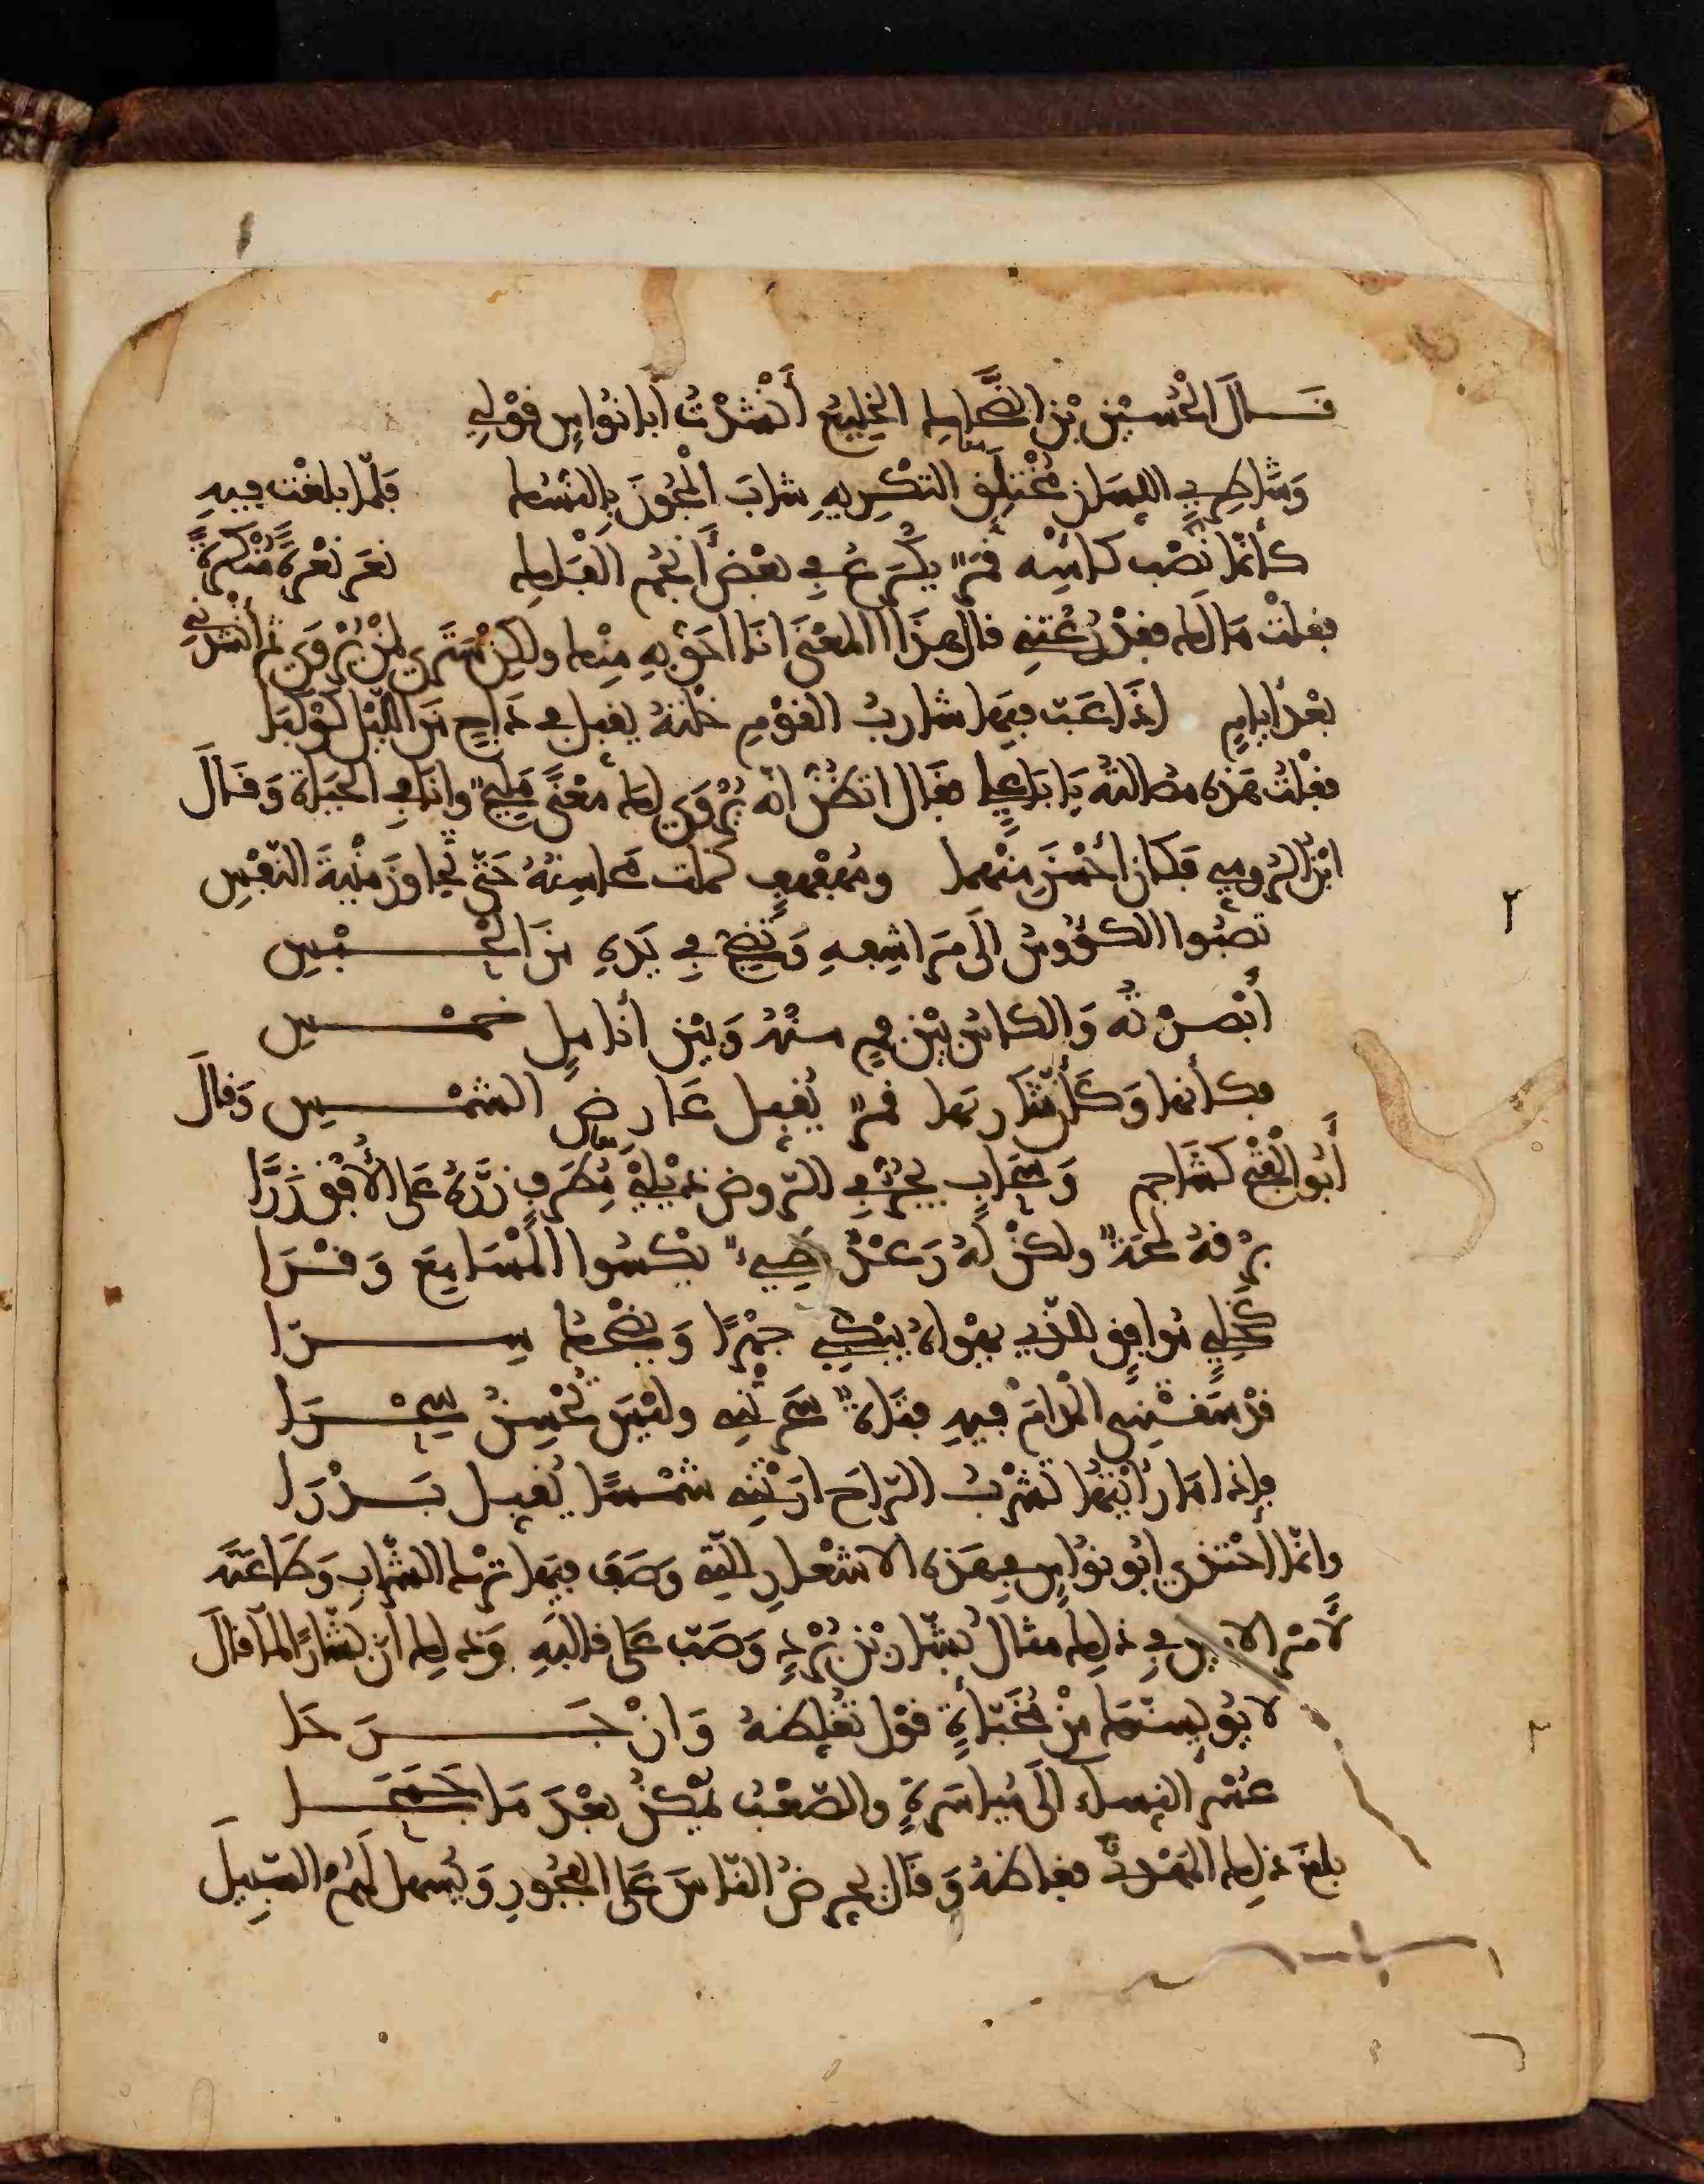 قال الحسين بن الضحاك الخليع أنشدتُ أبا نواس قولي
وشاطري اللسان مختلق التكريه شاب المجون بالنسك فلما بلغت فيه
كأنما نصب كأسه قمرٌ يكرع في بعض أنجم الفلك نعر نعرة منكرة
فقلت مالك فقد رعتني قال هذا المعنى أنا أحق به منك ولكن سترى لمن يروى ثم أنشدني
بعد أيام إذا عب فيها شارب القوم خلته يقبل في داج من الليل كوكبا
فقلت هذه مصالتة يا أبا علي فقال اتظن أنه يروى لك معنى مليح وأنا في الحياة وقال
ابن الرومي فكان أحسن منهما ومهفهف كملت محاسنه حتى تجاوز منية النفس
تصبوا الكؤوس إلى مراشفه وتضج في يده من الحبس
أبصرته والكأس بين فم منه وبين أنامل خمس
فكأنها وكأن شاربها قمرٌ يقبل عارض الشمس وقال
أبو الفتح كشاجم وسحاب يجر في الروض ذيلي مطرف زره على الأفق زرا
برقه لمحة ولكن له رعد بطيء يكسوا المسامع وقرا
كخلي موافق للذي يهواه يبكي جهرا ويضحك سرا
قد سقتني المدام فيه فتاة سحرتني وليس تحسن سحرا
فإذا ما رأيتها تشرب الراح أرتني شمسا يقبل بدرا
وإنما احتذى أبو نواس في هذه الأشعار التي وصف فيها ترك الشراب وطاعته
لأمر الأمين في ذلك مثال بشار بن برد وصب على قالبه وذلك أن بشارا لما قال
لا يؤيسنك من مخبأة قول تغلظه وإن جرحا
عسر النساء إلى مياسرة والصعب يمكن بعد ما جمحا
بلغ ذلك المهدي فغاظه وقال يحرض الناس على الفجور ويسهل لهم السبيل